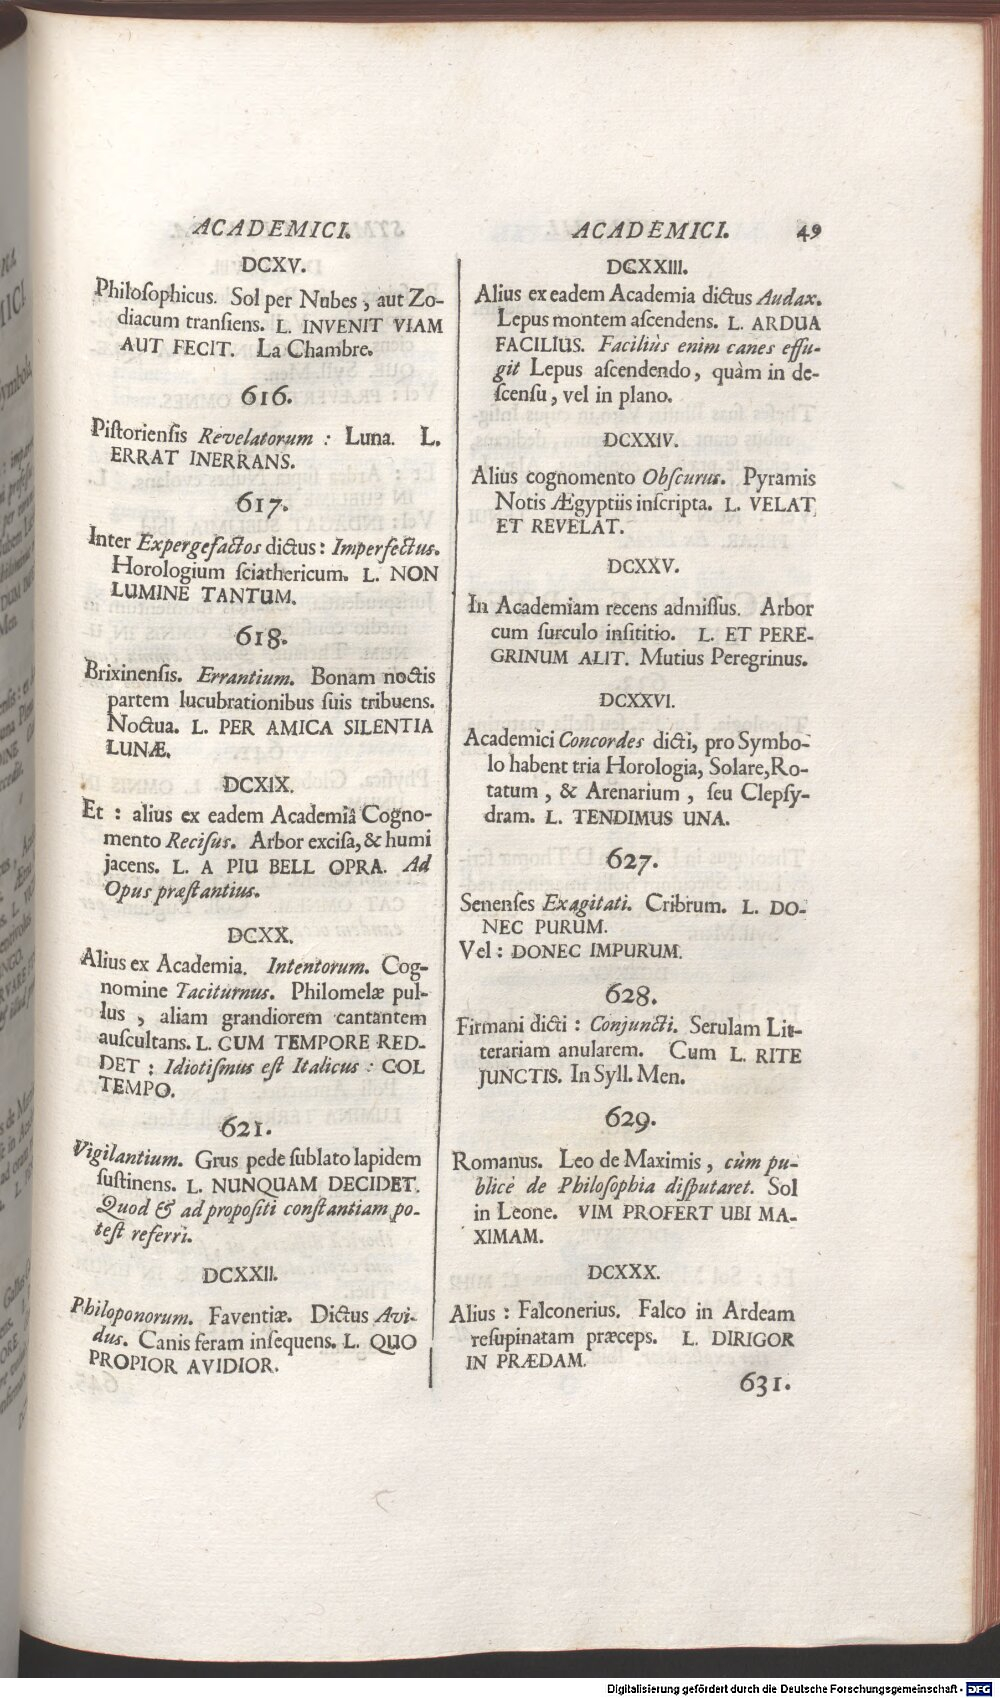 ACADEMICI.
DCXV.
Philoſophicus. Sol per Nubes, aut Zo-
diacum tranſiens. L. INVENIT VIAM
AUT FECIT. La Chambre.
616.
Piſtorienſis Revelatorum : Luna. L.
ERRAT INERRANS.
617.
Inter Expergefactos dictus : Imperfectus.
Horologium ſciathericum. L. NON
LUMINE TANTUM.
618.
Brixinenſis. Errantium. Bonam noctis
partem lucubrationibus ſuis tribuens.
Noctua. L. PER AMICA SILENTIA
LUNÆ.
DCXIX.
Et : alius ex eadem Academiâ Cogno-
mento Reciſus. Arbor exciſa, & humi
jacens. L. A PIU BELL OPRA. Ad
Opus præſtantius.
DCXX.
Alius ex Academia. Intentorum. Cog-
nomine Taciturnus. Philomelæ pul-
lus, aliam grandiorem cantantem
auſcultans. L. CUM TEMPORE RED-
DET : Idiotiſmus eſt Italicus : COL
TEMPO.
621.
Vigilantium. Grus pede ſublato lapidem
ſuſtinens. L. NUNQUAM DECIDET.
Quod & ad propoſiti conſtantiam po-
teſt referri.
DCXXII.
Philoponorum. Faventiæ. Dictus Avi-
dus. Canis feram inſequens. L. QUO
PROPIOR AVIDIOR.
ACADEMICI. 49
DCXXIII.
Alius ex eadem Academia dictus Audax.
Lepus montem aſcendens. L. ARDUA
FACILIUS. Faciliùs enim canes effu-
git Lepus aſcendendo, quàm in de-
ſcenſu, vel in plano.
DCXXIV.
Alius cognomento Obſcurus. Pyramis
Notis Ægyptiis inſcripta. L. VELAT
ET REVELAT.
DCXXV.
In Academiam recens admiſſus. Arbor
cum ſurculo inſititio. L. ET PERE-
GRINUM ALIT. Mutius Peregrinus.
DCXXVI.
Academici Concordes dicti, pro Symbo-
lo habent tria Horologia, Solare, Ro-
tatum, & Arenarium, ſeu Clepſy-
dram. L. TENDIMUS UNA.
627.
Senenſes Exagitati. Cribrum. L. DO-
NEC PURUM.
Vel : DONEC IMPURUM.
628.
Firmani dicti : Conjuncti. Serulam Lit-
terariam anularem. Cum L. RITE
JUNCTIS. In Syll. Men.
629.
Romanus. Leo de Maximis, cùm pu-
blicè de Philoſophia diſputaret. Sol
in Leone. VIM PROFERT UBI MA-
XIMAM.
DCXXX.
Alius : Falconerius. Falco in Ardeam
reſupinatam præceps. L. DIRIGOR
IN PRÆDAM.
631.
Digitalisierung gefördert durch die Deutsche Forschungsgemeinschaft - DFG